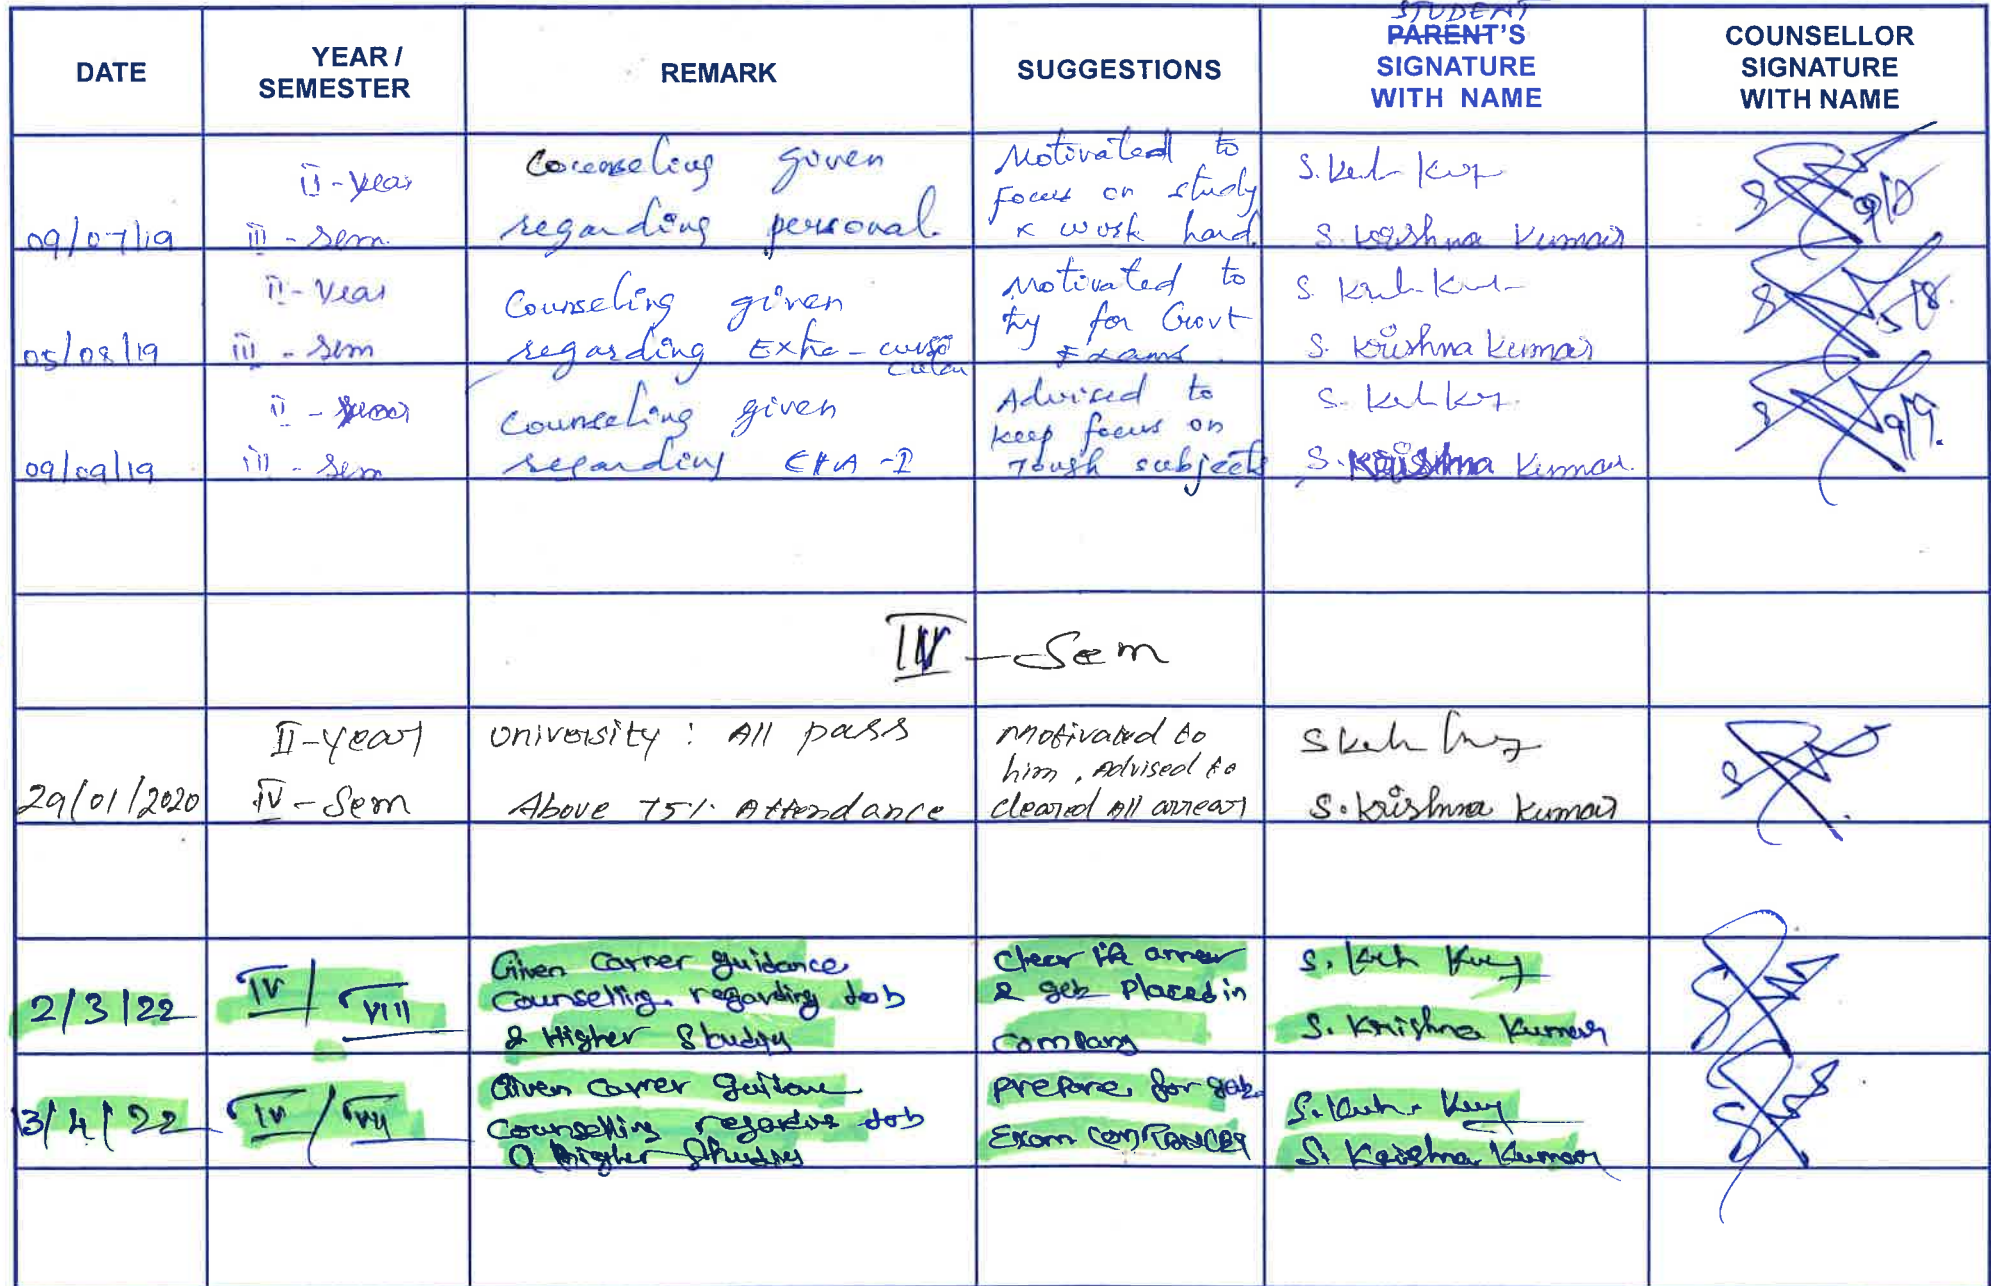 DATE
YEAR /
SEMESTER
REMARK
SUGGESTIONS
STUDENT
PARENT'S
SIGNATURE
WITH NAME
COUNSELLOR
SIGNATURE
WITH NAME
09/07/19
II - Year
III - Sem
Counseling given
regarding personal.
Motivated to
Focus on study
& work hard.
S. Krishna Kumar
9/7
05/08/19
II - Year
III - Sem
Counseling given
regarding Extra - curri
cular
Motivated to
try for Govt
Exams.
S. Krishna Kumar
5/8.
09/09/19
II - Year
III - Sem
Counseling given
regarding
Advised to
keep focus on
Tough subjects
S. Krishna Kumar.
9/9.
IV - Sem
29/01/2020
II - year
IV - Sem
University : All pass
Above 75% Attendance
motivated to
him, Advised to
cleared All arrears
S. Krishna Kumar
2/3/22
IV / VIII
Given Carrer guidance
Counselling regarding Job
& Higher Study
Clear the arrear
& get Placed in
Company
S. Krishna Kumar
3/4/22
IV / VII
Given Carrer
Counselling Job
Higher Studies
Prepare for
Exam
S. Krishna Kumar